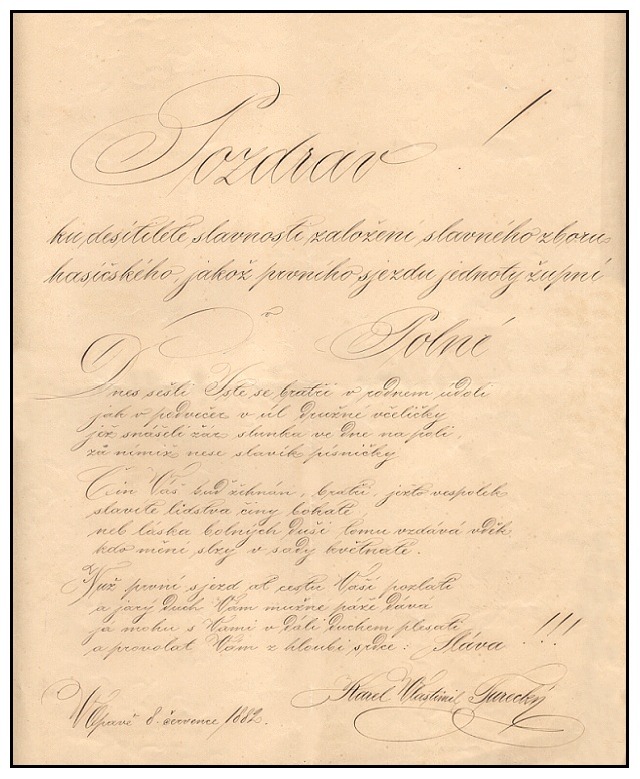 Pozdrav!
ku desítileté slavnosti založení slavného zboru
hasičského, jakož prvního sjezdu jednoty župní
v
Polné
Dnes sešli Jste se bratři v rodném údolí
jak v podvečer v úl družné včeličky
jež snášely žár slunka ve dne na poli,
za nimiž nese slavík písničky
Čin Váš buď žehnán, bratři, ježto vespolek
slavíte lidstva činy bohaté,
neb láska bolných duší tomu vzdává vděk
kdo mění slzy v sady květnaté.
Nuž první sjezd ať cestu Vaši pozlatí
a jarý duch Vám mužné páže dává
já mohu s Vámi v dáli duchem plesati
a provolat Vám z hloubi srdce: Sláva!!!
Karel Vlastimil Turecký
V Opavě 8. července 1882.